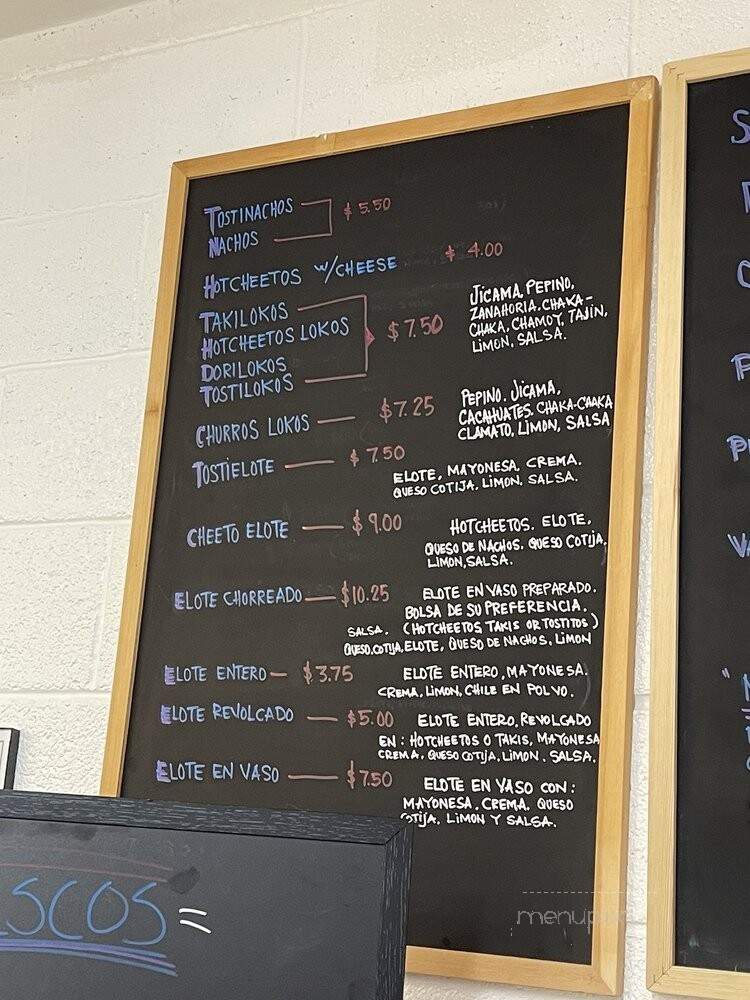 TOSTINACHOS
$5.50
NACHOS
HOTCHEETOS W/CHEESE $4.00
TAKILOKOS
HOTCHEETOS LOKOS
DORILOKOS
TOSTILOKOS
$7.50
JICAMA, PEPINO,
ZANAHORIA, CHAKA-
CHAKA, CHAMOY, TAJIN,
LIMON, SALSA.
CHURROS LOKOS $7.25
PEPINO, JICAMA,
CACAHUATES, CHAKA-CHAKA
CLAMATO, LIMON, SALSA
TOSTIELOTE $7.50
ELOTE, MAYONESA, CREMA.
QUESO COTIJA, LIMON, SALSA.
CHEETO ELOTE $9.00
HOTCHEETOS, ELOTE,
QUESO DE NACHOS, QUESO COTIJA,
LIMON, SALSA.
ELOTE CHORREADO $10.25
ELOTE EN VASO PREPARADO.
BOLSA DE SU PREFERENCIA.
SALSA. (HOTCHEETOS, TAKIS OR TOSTITOS)
QUESO COTIJA, ELOTE, QUESO DE NACHOS, LIMON
ELOTE ENTERO $3.75
ELOTE ENTERO, MAYONESA.
CREMA, LIMON, CHILE EN POLVO.
ELOTE REVOLCADO $5.00
ELOTE ENTERO, REVOLCADO
EN: HOTCHEETOS O TAKIS, MAYONESA
CREMA, QUESO COTIJA, LIMON, SALSA.
ELOTE EN VASO $7.50
ELOTE EN VASO CON:
MAYONESA, CREMA, QUESO
COTIJA, LIMON Y SALSA.
SCOS=